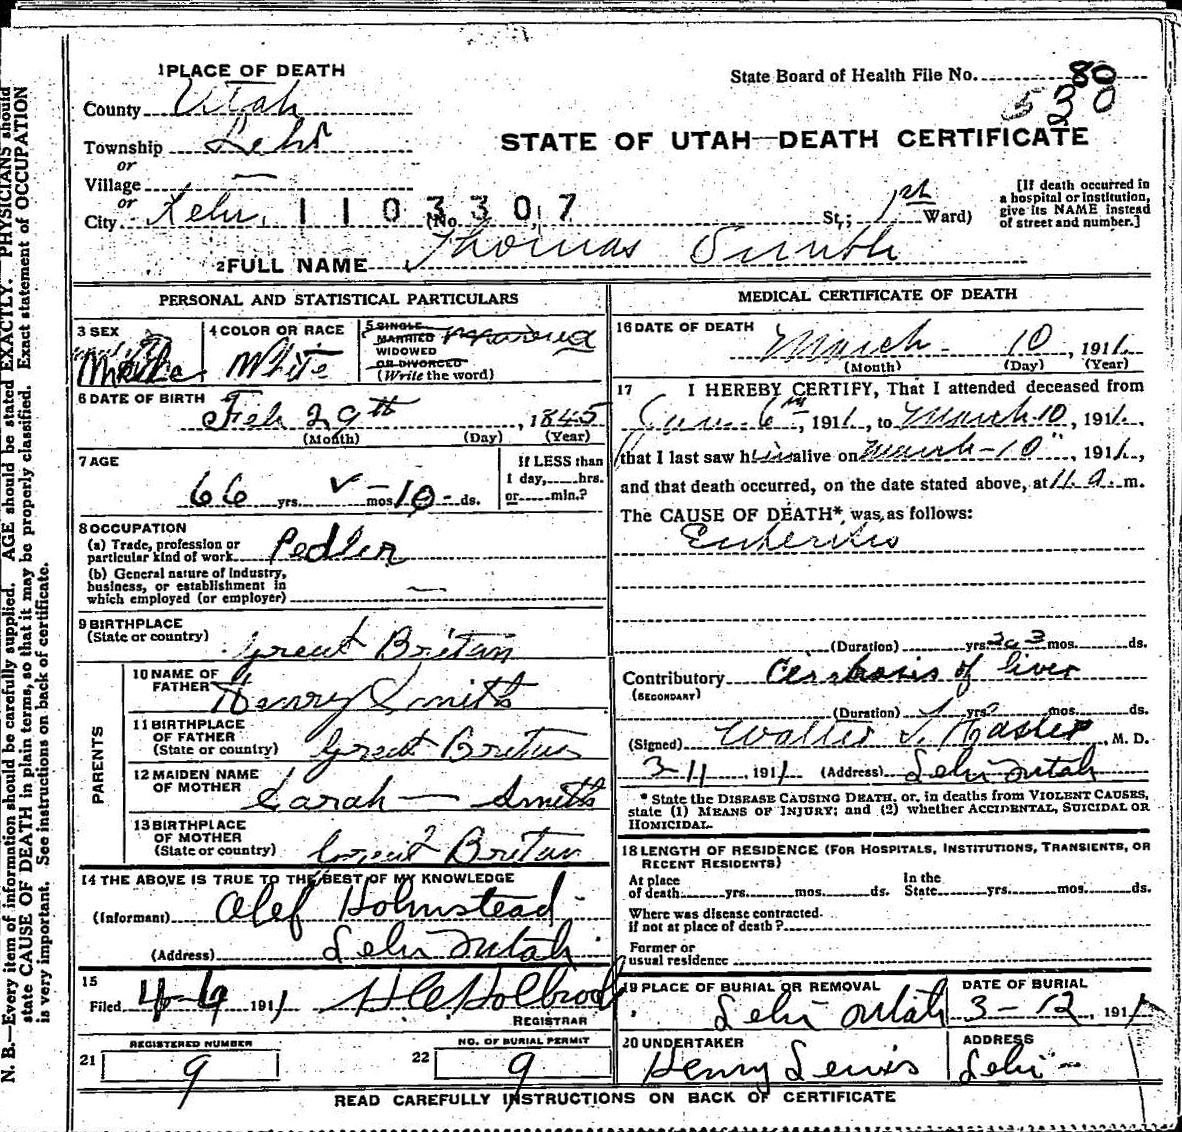 1 PLACE OF DEATH
State Board of Health File No. 80
530
County Utah
Township Lehi
or
Village —
or
City Lehi, 1103307 (No. St.; 1st Ward)
[If death occurred in a hospital or institution, give its NAME instead of street and number.]
STATE OF UTAH—DEATH CERTIFICATE
2 FULL NAME Thomas Smith
PERSONAL AND STATISTICAL PARTICULARS
3 SEX
4 COLOR OR RACE White
5 SINGLE MARRIED WIDOWED OR DIVORCED (Write the word) Married
6 DATE OF BIRTH Feb 29th, 1845
(Month) (Day) (Year)
7 AGE 66 yrs. mos. 10 ds.
If LESS than 1 day, hrs. or min.?
8 OCCUPATION
(a) Trade, profession or particular kind of work Pedler
(b) General nature of industry, business, or establishment in which employed (or employer) —
9 BIRTHPLACE
(State or country) Great Britain
PARENTS
10 NAME OF FATHER Henry Smith
11 BIRTHPLACE OF FATHER (State or country) Great Britain
12 MAIDEN NAME OF MOTHER Sarah — Smith
13 BIRTHPLACE OF MOTHER (State or country) Great Britain
14 THE ABOVE IS TRUE TO THE BEST OF MY KNOWLEDGE
(Informant) Olef Holmstead
(Address) Lehi Utah
15
Filed 1911 Holbrook
REGISTRAR
REGISTERED NUMBER
21 9
NO. OF BURIAL PERMIT
22 9
MEDICAL CERTIFICATE OF DEATH
16 DATE OF DEATH
March 10, 1911
(Month) (Day) (Year)
17 I HEREBY CERTIFY, That I attended deceased from
6th, 1911, to March 10, 1911,
that I last saw him alive on March 10", 1911,
and that death occurred, on the date stated above, at 11 a. m.
The CAUSE OF DEATH*, was, as follows:
Enteritis
(Duration) yrs. 2 or 3 mos. ds.
Contributory Cirrhosis of liver
(SECONDARY)
(Duration) 1 yrs? mos. ds.
(Signed) Walter T. Hasler, M. D.
3-11, 1911 (Address) Lehi Utah
* State the DISEASE CAUSING DEATH, or, in deaths from VIOLENT CAUSES, state (1) MEANS OF INJURY; and (2) whether ACCIDENTAL, SUICIDAL OR HOMICIDAL.
18 LENGTH OF RESIDENCE (FOR HOSPITALS, INSTITUTIONS, TRANSIENTS, OR RECENT RESIDENTS)
At place of death yrs. mos. ds. In the State yrs. mos. ds.
Where was disease contracted if not at place of death?
Former or usual residence
19 PLACE OF BURIAL OR REMOVAL Lehi Utah
DATE OF BURIAL 3-12, 1911
20 UNDERTAKER Henry Lewis
ADDRESS Lehi
READ CAREFULLY INSTRUCTIONS ON BACK OF CERTIFICATE
N. B.—Every item of information should be carefully supplied. AGE should be stated EXACTLY. PHYSICIANS should
state CAUSE OF DEATH in plain terms, so that it may be properly classified. Exact statement of OCCUPATION
is very important. See instructions on back of certificate.